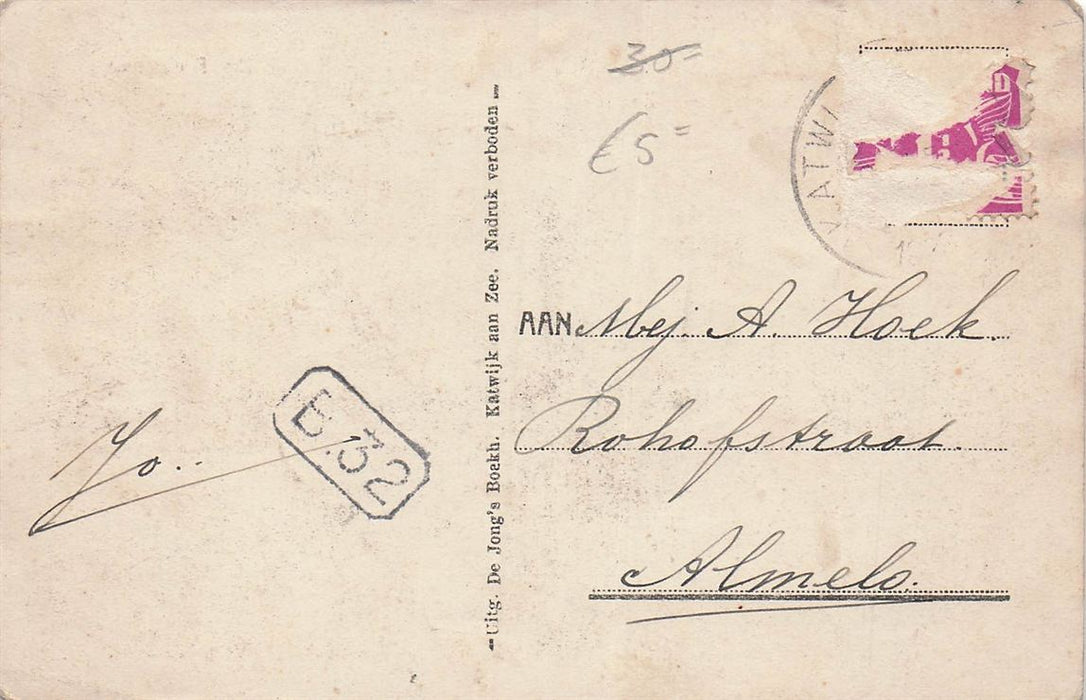 30=
€5=
KATWI
AAN Mej. A. Hoek.
Rohofstraat.
Almelo.
Jo..
B.32
Uitg. De Jong's Boekh. Katwijk aan Zee. Nadruk verboden